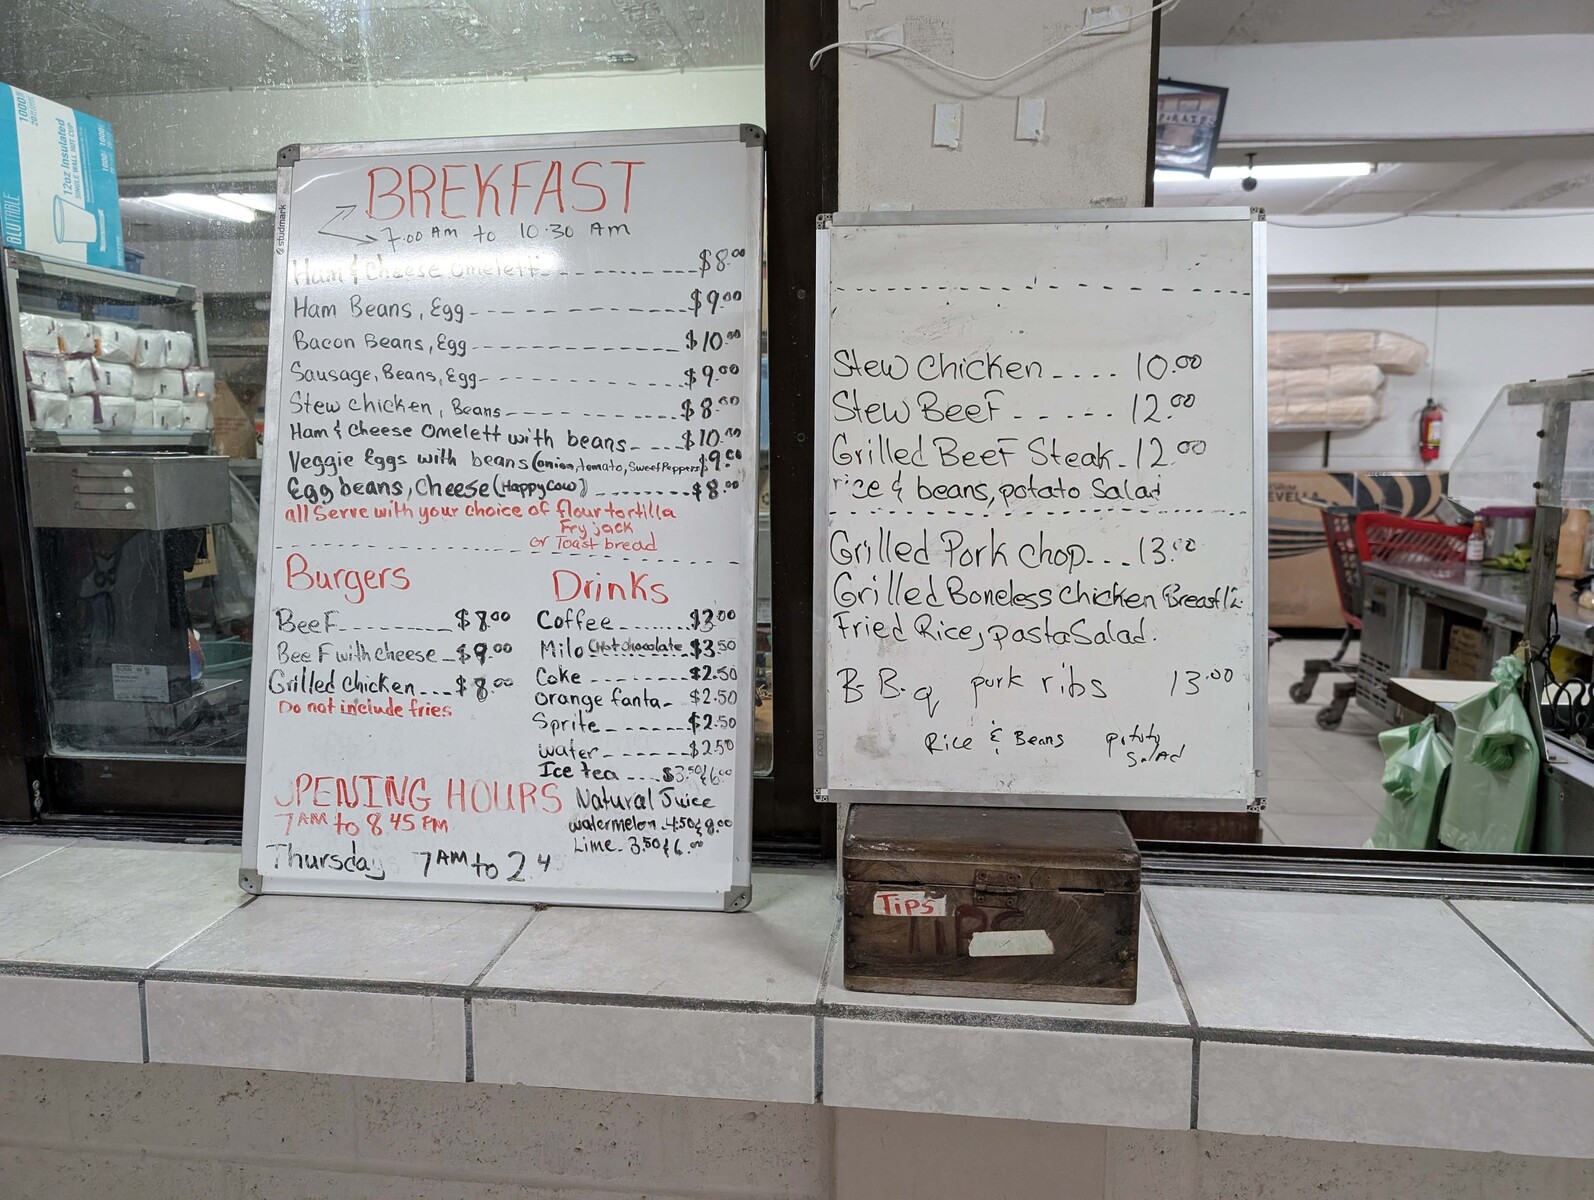 BREKFAST
7.00 AM to 10.30 AM
Ham & Cheese Omelett $8.00
Ham Beans, Egg $9.00
Bacon Beans, Egg $10.00
Sausage, Beans, Egg $9.00
Stew chicken, Beans $8.00
Ham & Cheese Omelett with beans $10.00
Veggie Eggs with beans (onion, tomato, Sweet Peppers $9.00
Egg beans, Cheese (Happy Cow) $8.00
all Serve with your choice of flour tortilla
Fry jack
or Toast bread
Burgers
Beef $8.00
Beef with cheese $9.00
Grilled chicken $8.00
Do not include fries
Drinks
Coffee $3.00
Milo (Hot chocolate $3.50
Coke $2.50
orange fanta $2.50
Sprite $2.50
water $2.50
Ice tea $3.50 & 6.00
Natural Juice
watermelon 4.50 & 8.00
Lime 3.50 & 6.00
OPENING HOURS
7AM to 8 45 PM
Thursday 7AM to 2 4
studmark
Stew chicken .... 10.00
Stew Beef ..... 12.00
Grilled Beef Steak . 12.00
rice & beans, potato Salad
Grilled Pork chop ... 13.00
Grilled Boneless chicken Breast 12
Fried Rice, pasta Salad.
B.B.q pork ribs 13.00
Rice & Beans potato
Salad
Mead
Tips
TIPS
1000
12oz Insulated
SINGLE WALL HOT CUP
1000
PIRATES
EVELLA